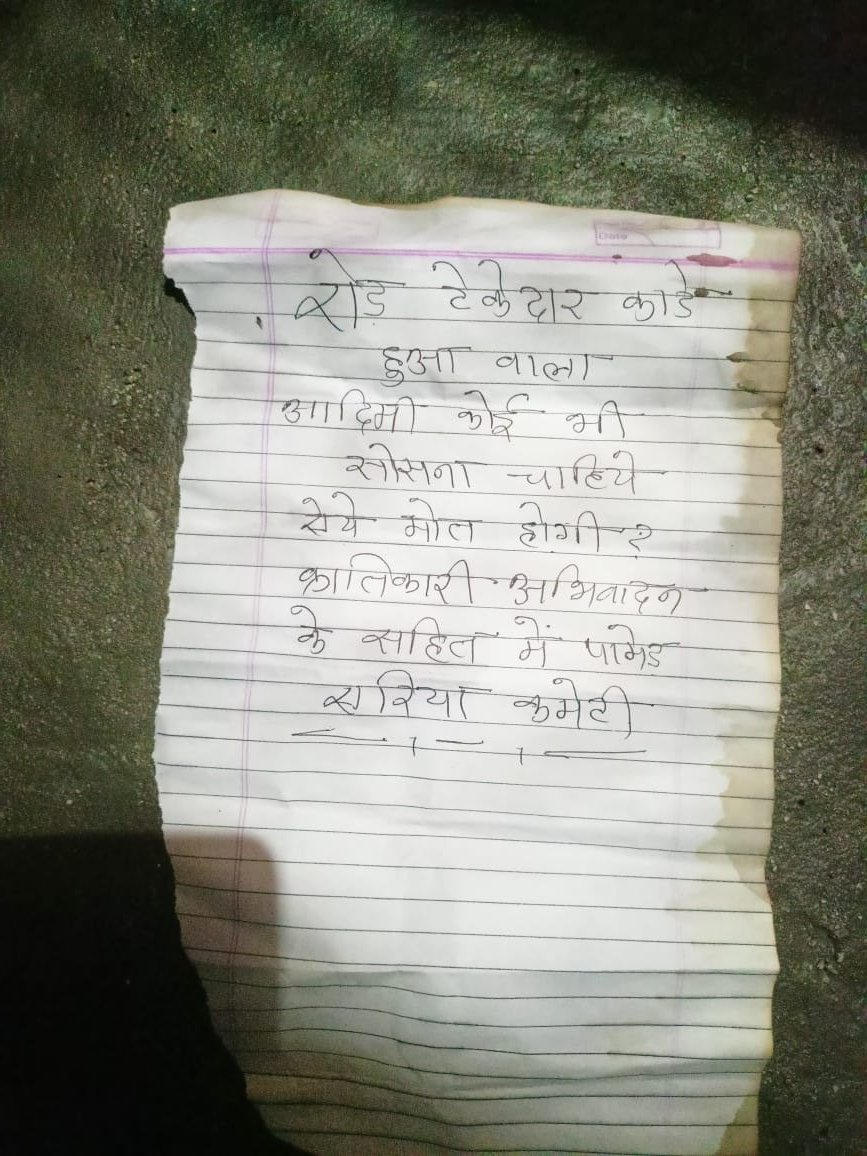 Date
रोड टेकेदार काडे
हुआ वाला
आदिमी कोई भी
सोसना चाहिये
सेये मोत होगी?
क्रातिकारी अभिवादन
के सहित में पामेड
सरिया कमेटी